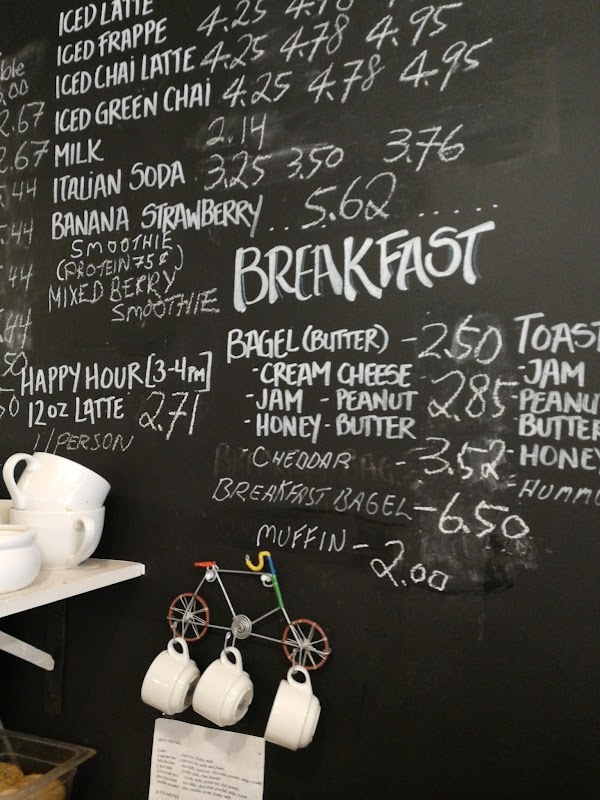 ICED LATTE 4.25 4.78
ICED FRAPPE 4.25 4.78 4.95
ICED CHAI LATTE 4.25 4.78 4.95
ICED GREEN CHAI
MILK 2.14
ITALIAN SODA 3.25 3.50 3.76
BANANA STRAWBERRY .. 5.62 ......
SMOOTHIE
(PROTEIN 75¢)
MIXED BERRY
SMOOTHIE
2.67
2.67
.44
.44
.44
.44
HAPPY HOUR [3-4PM]
12oz LATTE 2.71
1/PERSON
BREAKFAST
BAGEL (BUTTER) - 2.50
-CREAM CHEESE
-JAM - PEANUT 2.85
-HONEY - BUTTER
CHEDDAR - 3.52
BREAKFAST BAGEL - 6.50
MUFFIN - 2.00
TOAST
-JAM
-PEANU
BUTTER
-HONEY
HUMMU